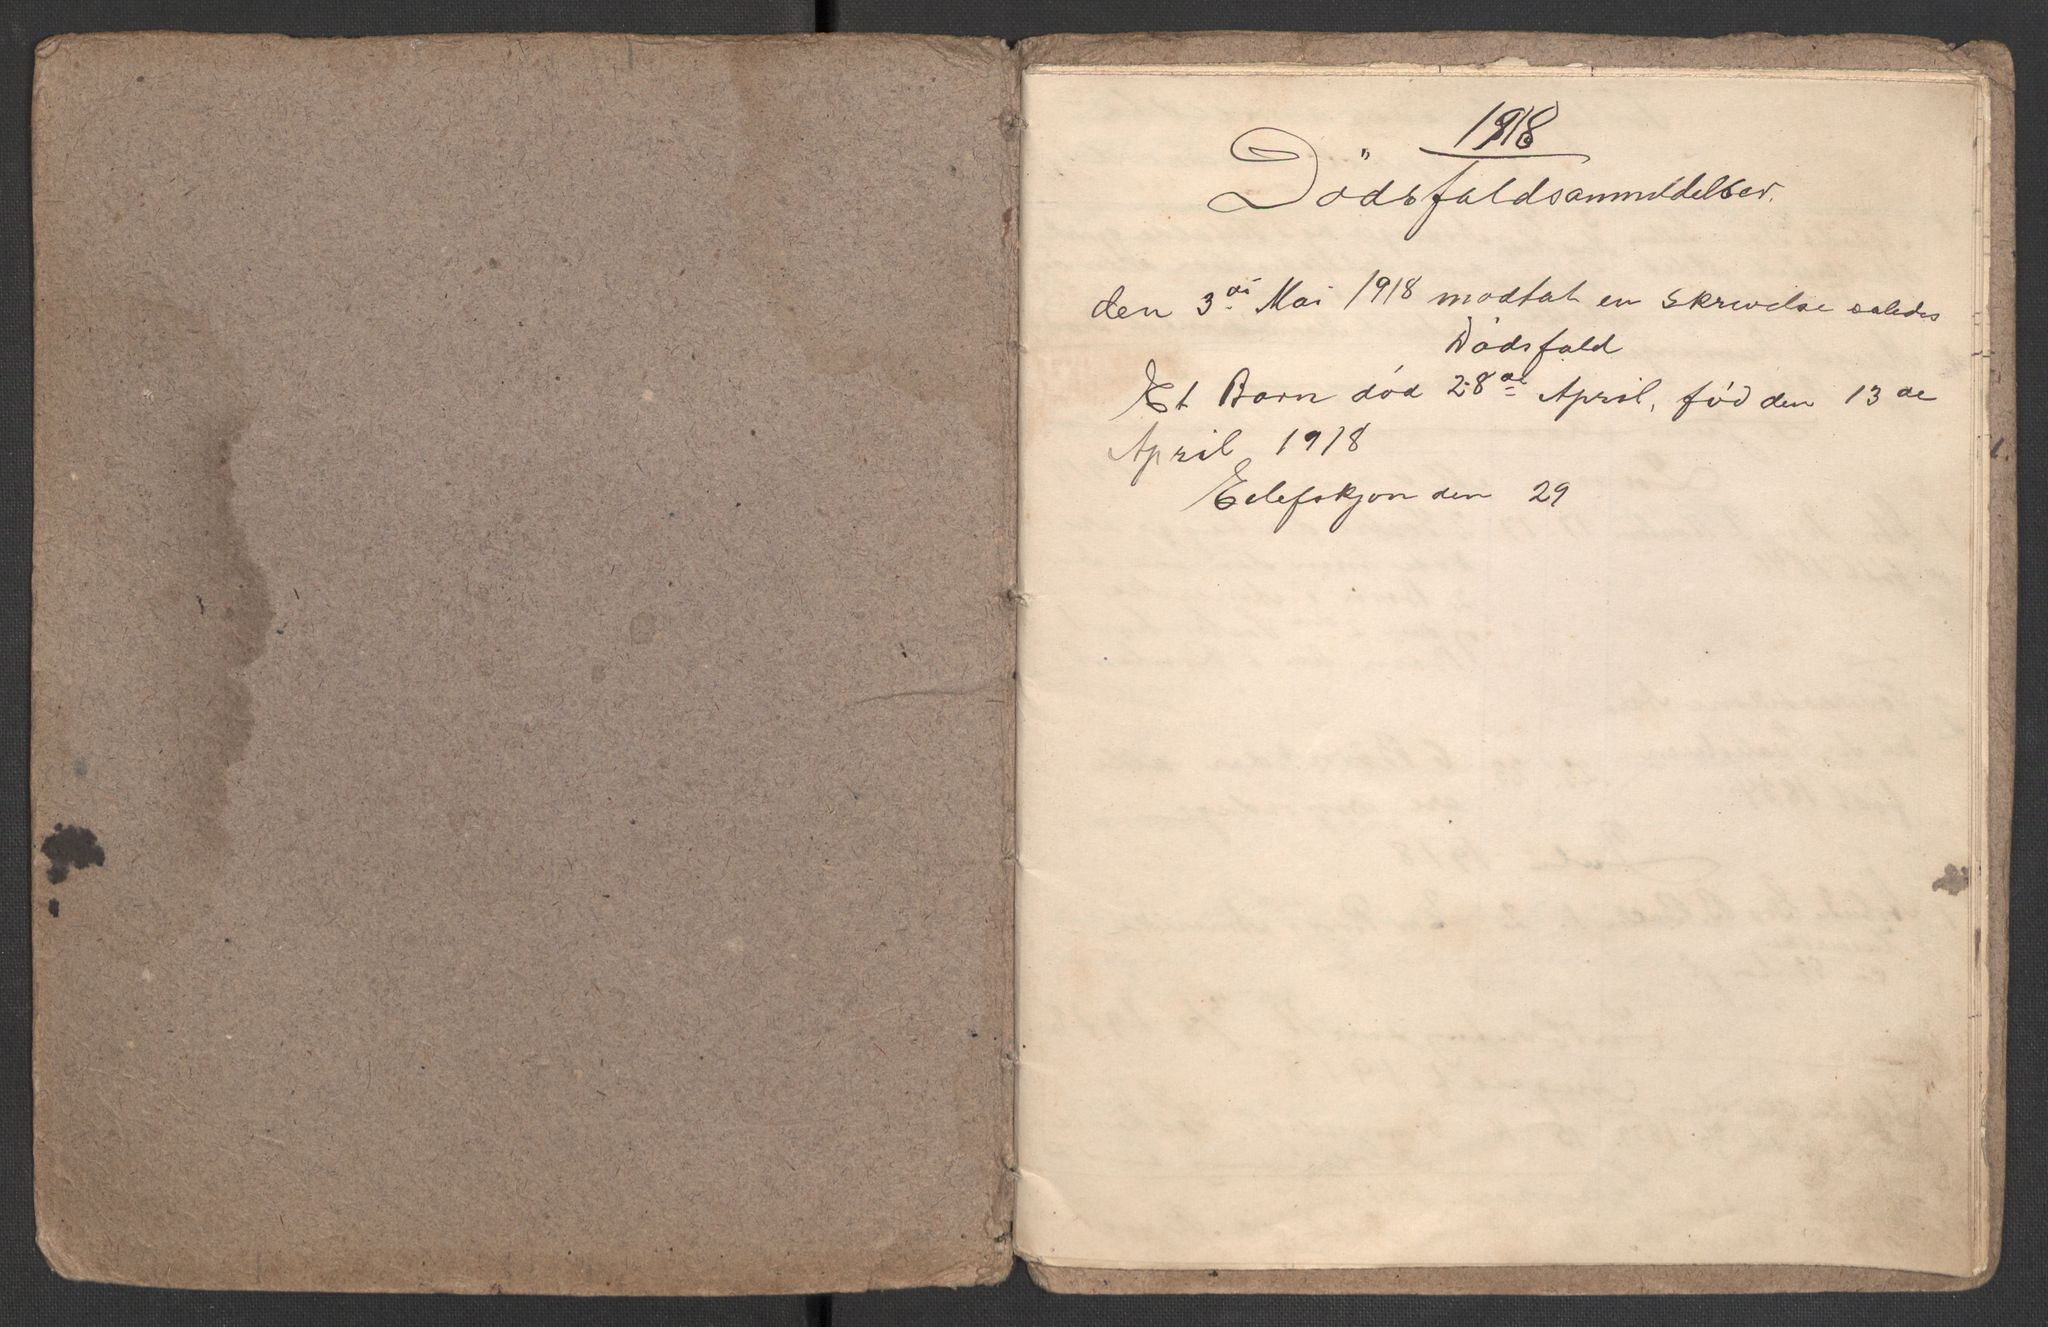 1918
Dödsfaldsanmeldelser.
den 3di Mai 1918 modtat en skrivelse saledes
Dödsfald
Et Barn død 28de April, fød den 13de
April 1918
Eilefskjon den 29